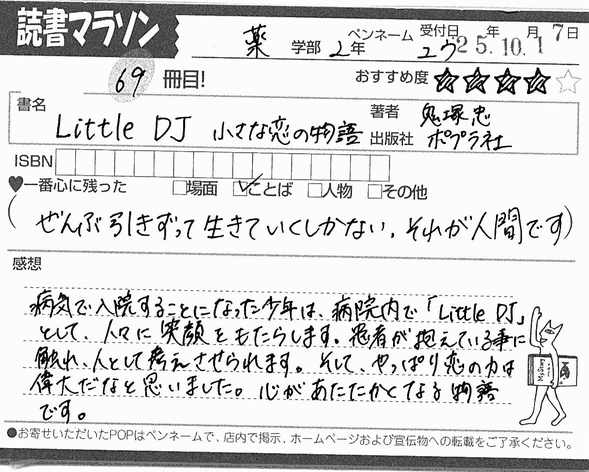 読書マラソン
薬 学部 2年 ペンネーム ユウ 受付日 25年10月17日
69 冊目! おすすめ度 ★★★★☆
書名 Little DJ 小さな恋の物語
著者 鬼塚忠
出版社 ポプラ社
ISBN
♥一番心に残った □場面 ☑ことば □人物 □その他
(ぜんぶ引きずって生きていくしかない、それが人間です)
感想
病気で入院することになった少年は、病院内で「Little DJ」
として、人々に笑顔をもたらします。患者が抱えている事に
触れ、人として考えさせられます。そして、やっぱり恋の力は
偉大だなと思いました。心があたたかくなる物語
です。
●お寄せいただいたPOPはペンネームで、店内で掲示、ホームページおよび宣伝物への転載をご了承ください。